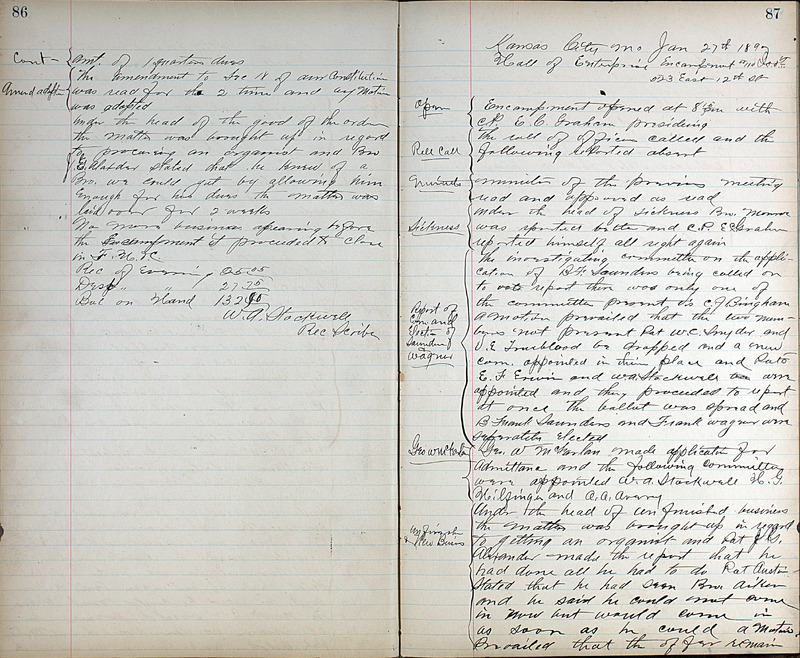 86
Cont - amt. of 1 quarters dues
The amendment to Sec 18 of our Constitution
Amend adopted was read for the 2 time and by Motion
was adopted
under the head of the good of the order
the matter was bought up in regard
to procuring an organist and Bro
Alexander stated that he knew of
Bro. we could get by allowing him
Enough for his dues the matter was
laid over for 2 weeks
No more business apearing before
the Encampment it proceeded to close
in F. H. C
Rec of Evening
Desp " "
Bal on Hand
W. A. Stockwell
Rec Scribe
87
Kansas City Mo Jan 27th 189
Hall of Enterprise Encampment
East 12th St
Open Encampment opened at 8 Pm with
C.P. E. C. Graham presideing
the roll of officers called and the
Roll Call following reported absent
Minuets minutes of the previous meeting
read and approved as read
under the head of sickness Bro. Monroe
Sickness was reported better and C.P. E Graham
reported himself all right again
the investigating committee on the appli-
cation of B.F. Saunders being called on
to vote report ther was only one of
the committee present C. J Bingham
a motion prevailed that the two mem-
Report of bers not present Pat W.C. Snyder and
Com. and V. E. Trueblood be dropped and a new
Election of com. appointed in their place and Pats
Saunders & E. F. Erwin and W.A. Stockwell were
Wagner appointed and they proceeded to report
at once the ballot was spread and
B Frank Saunders and Frank Wagner were
seperately Elected
Geo W McFarlan Geo. W McFarlan made application for
Admittance and the following committee
were appointed W.A. Stockwell H. G.
Hilsinger and A.A. Avery
Under the head of unfinished business
the matter was brought up in regard
Unfinished & New Busines to getting an organist and Pat
Alexander made the report that he
had done all he had to do Pat Austin
stated that he had seen Bro. Aitken
and he said he could not come
in now but would come in
as soon as he could a Motion
Prevailed that the offer remain